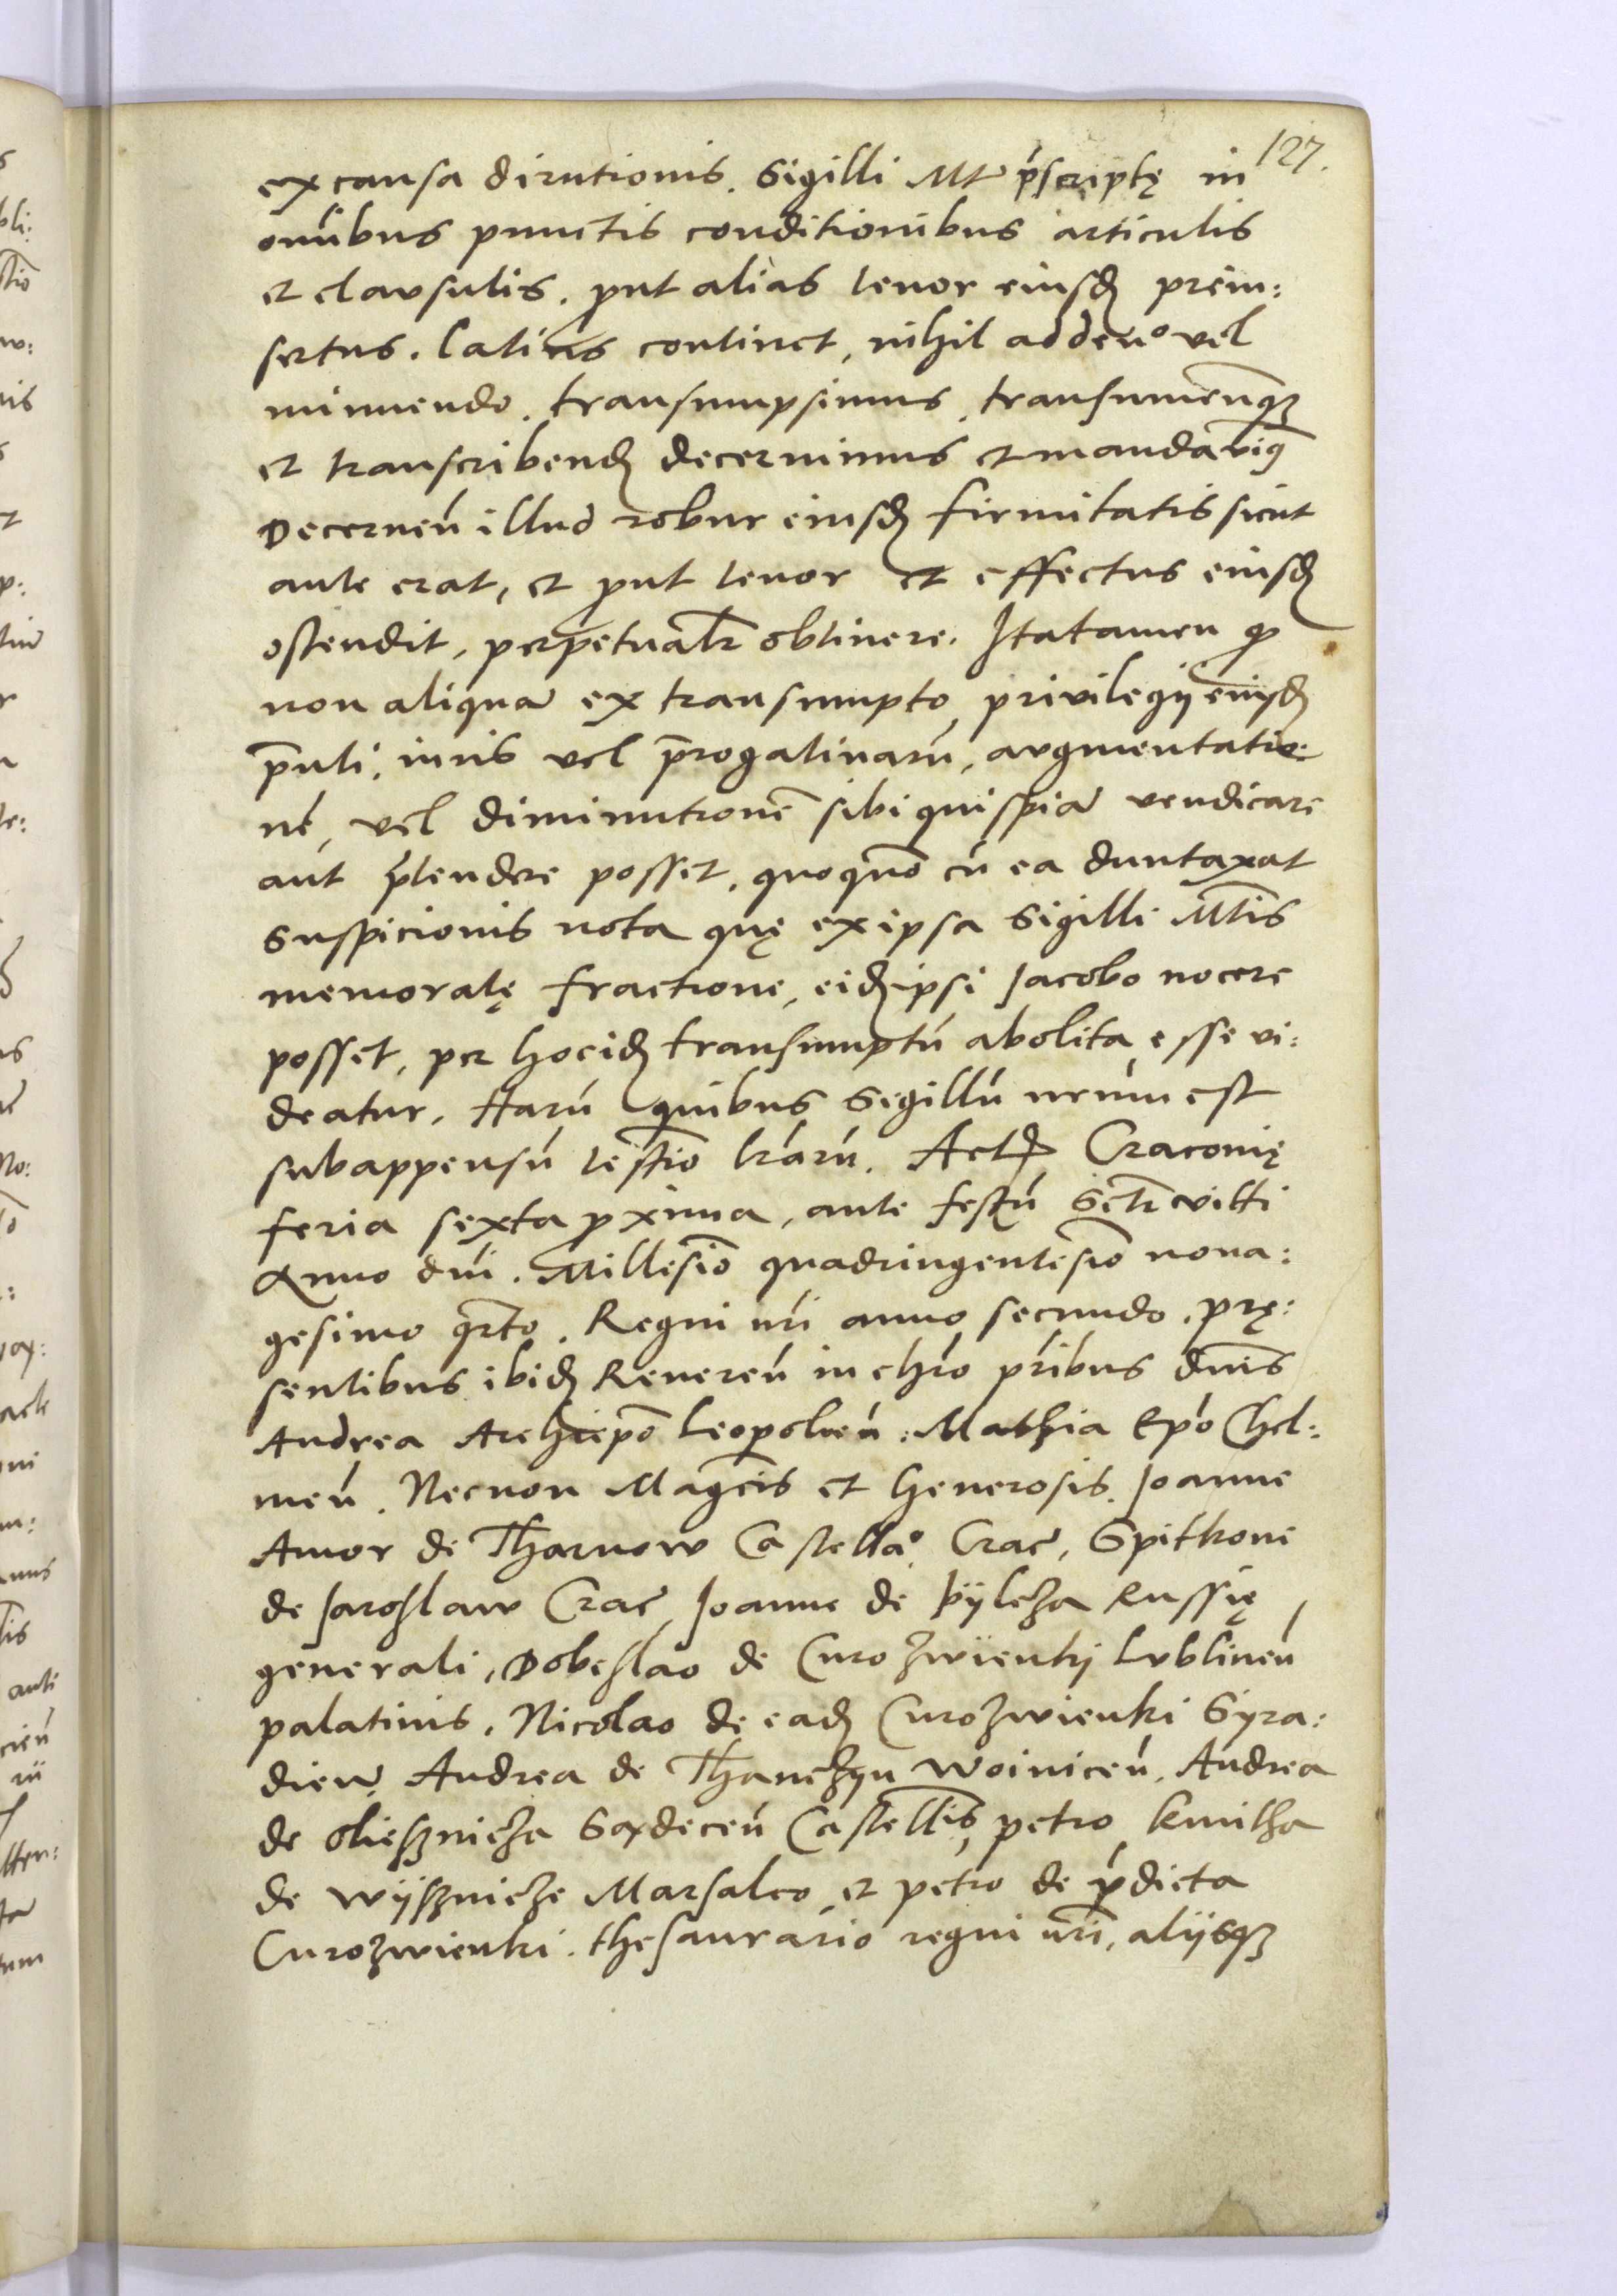 127.
ex causa dirutionis. Sigilli Mt p̄scriptę in
om̄ibus punctis conditionibus articulis
et clausulis. ꝓut alias tenor eiusd̄ prein:
sertus. latius continet, nihil adden° vel
minuendo. transumpsimus, transumen̄qꝫ
et transcribend̄ decernimus et mandavim9
Decernen̄ illud robur eiusd̄ firmitatis sicut
ante erat, et ꝓut tenor et effectus eiusd̄
ostendit, perpetualr̄ obtinere. Itatamen ꝙ
non aliqua ex transumpto privilegij eiusd̄
p̄nti, iuris vel p̄rogatinarū, augmentatio:
nē, vel diminutionē sibi quispiā vendicare
aut p̄tendere posset, quoquō cū ea duntaxat
suspicionis nota quę ex ipsa Sigilli Mt̄is
memoratę fractione, eid̄ ipsi Jacobo nocere
posset, per hocid̄ transumptū abolita esse vi:
deatur. Harū quibus Sigillū nr̄um est
subappensū testio l̄rarū. Act Craconię
feria sexta ꝓxima, ante festū Sctī vitti
Anno dn̄i. Millesiō quadringentesiō nona:
gesimo qrto. Regni nr̄i anno secundo. prę:
sentibus ibid̄ Reveren̄ in chr̄o pr̄ibus dn̄is
Andrea Archiepō Leopolien̄. Mathia Ep̄o Chel:
men̄. Necnon Magcis et Generosis. Joanne
Amor de Tharnow Castella° Crac̄, Spitkone
de Jaroslaw Crac̄ Joanne de Pÿlcza Russię
generali, Dobeslao de Curozwienkij Lublinen̄
palatinis. Nicolao de ead̄ Curozwienki Syra:
dien̄, Andrea de Thanczyn Woinicen̄. Andrea
de oliesznicza Saxdecen̄ Castellīs, petro kmitha
de Wÿsznicze Marsalco et petro de p̄dicta
Curozwienki. thesaurario regni nr̄i, alijsqꝫ